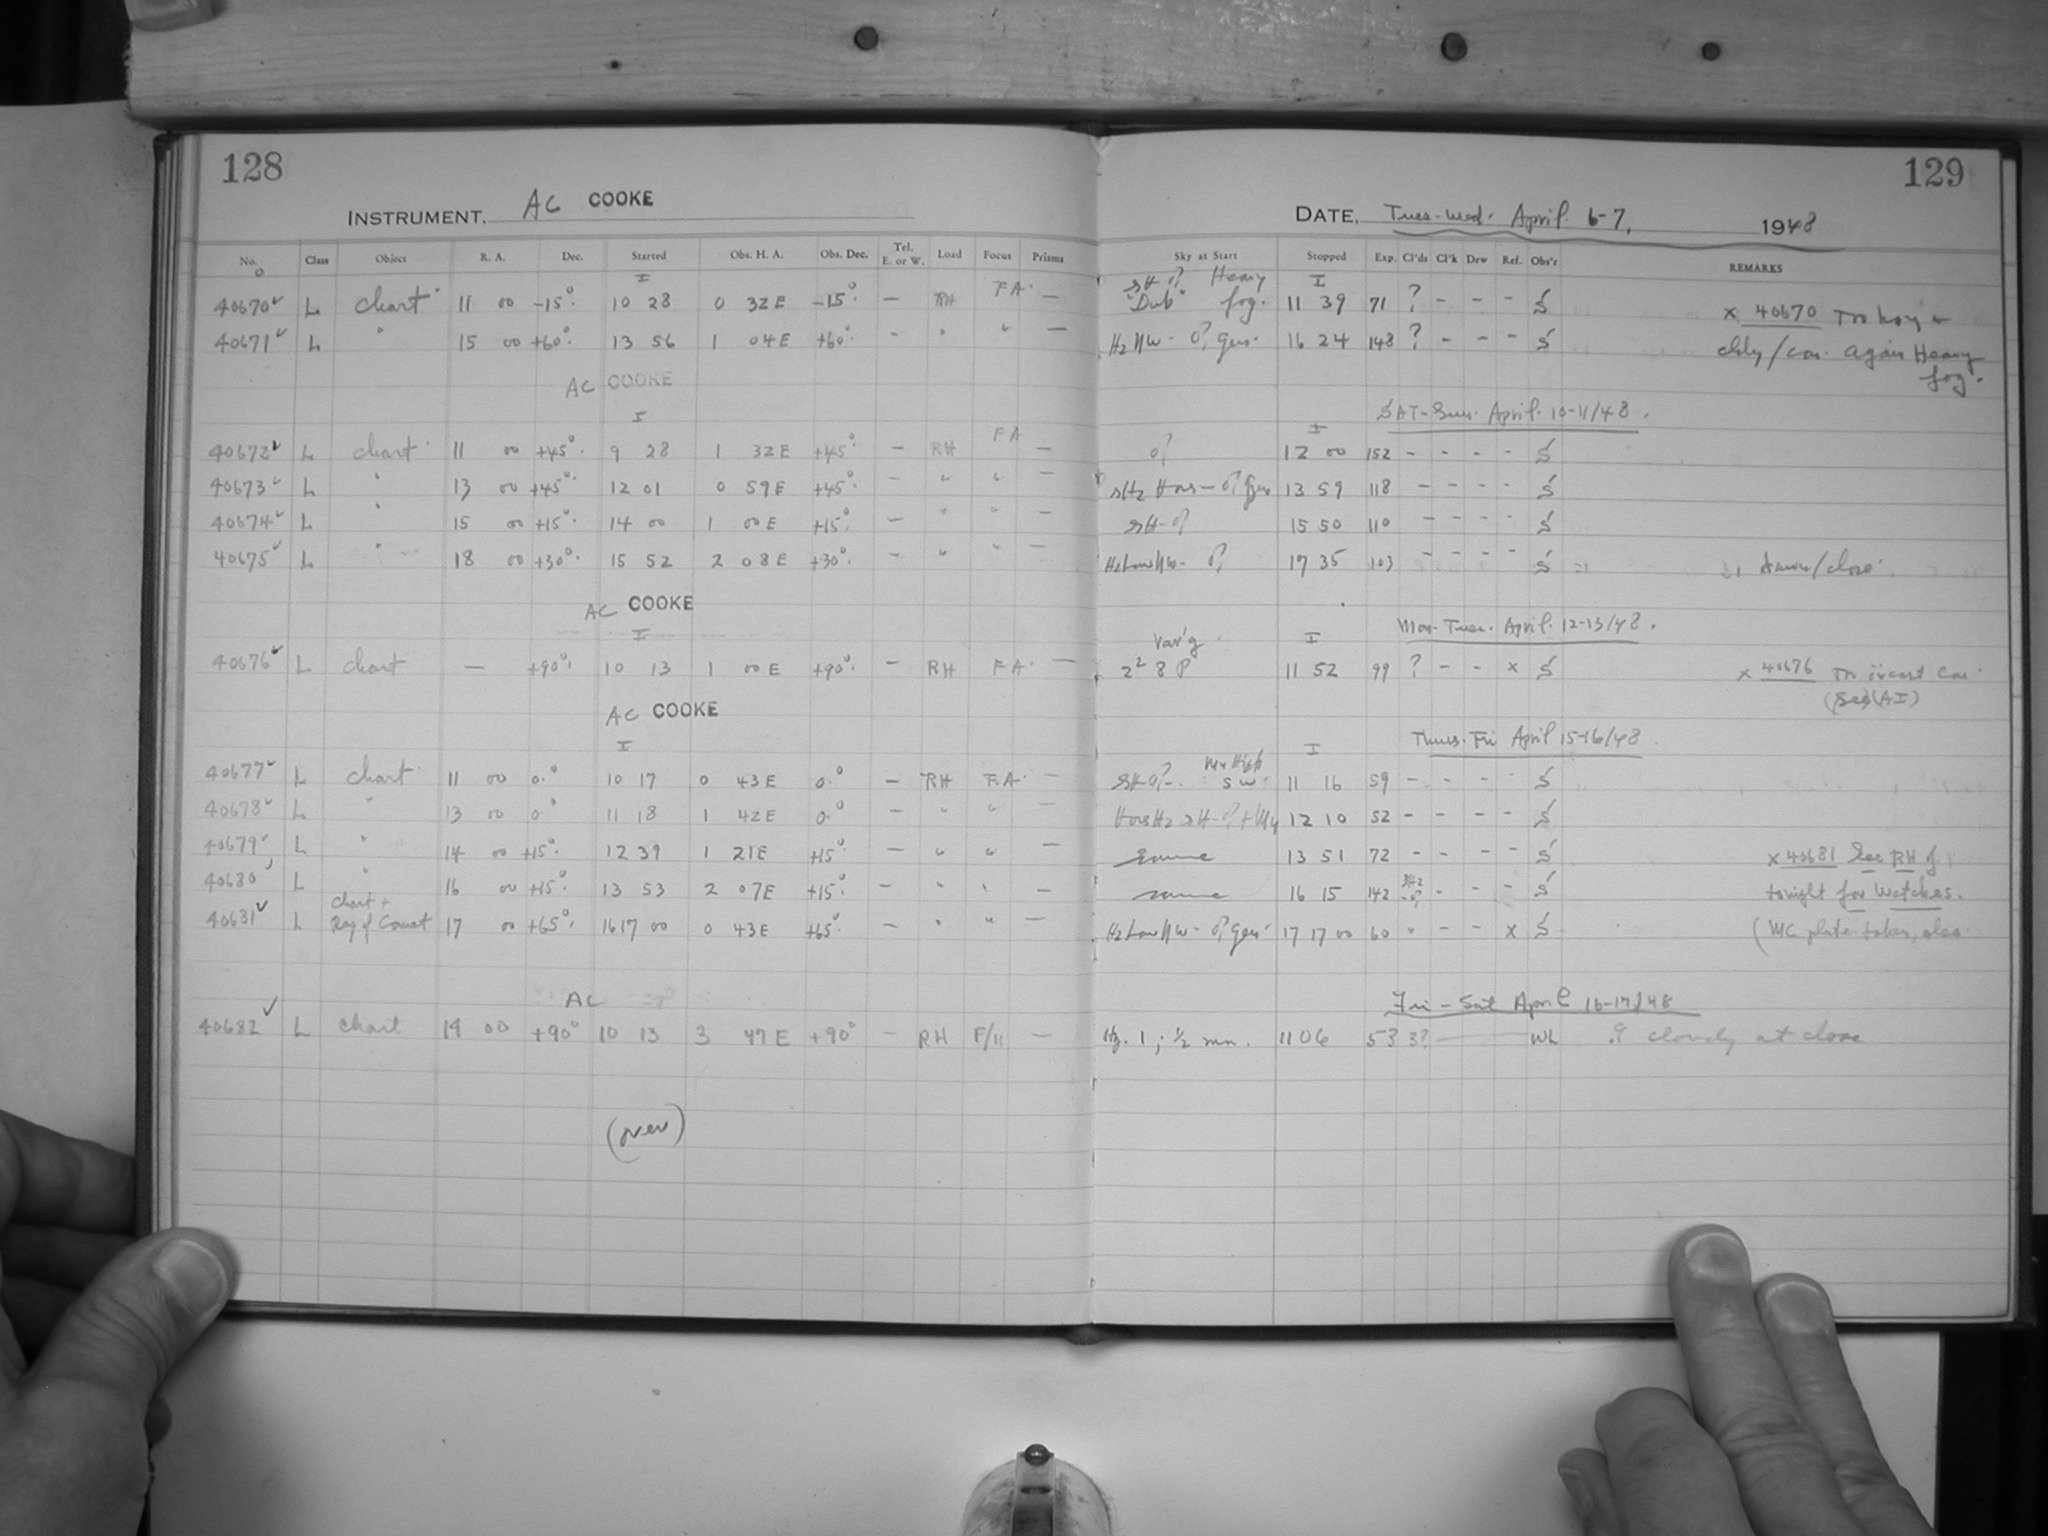 128
INSTRUMENT, AC COOKE
No. Class Object R. A. Dec. Started Obs. H. A. Obs. Dec. Tel. E. or W. Load Focus Prisms
I
40670 L chart 11 00 -15° 10 28 0 32E -15° - RH FA. -
40671 L " 15 00 +60° 13 56 1 04E +60° - " " -
AC COOKE
I
40672 L chart 11 00 +45° 9 28 1 32E +45° - RH FA -
40673 L " 13 00 +45° 12 01 0 59E +45° - " " -
40674 L " 15 00 +15° 14 00 1 00E +15° - " " -
40675 L " 18 00 +30° 15 52 2 08E +30° - " " -
AC COOKE
I
40676 L chart - +90° 10 13 1 00E +90° - RH FA. -
AC COOKE
I
40677 L chart 11 00 0° 10 17 0 43E 0° - RH F.A. -
40678 L " 13 00 0° 11 18 1 42E 0° - " " -
40679 L " 14 00 +15° 12 39 1 21E +15° - " " -
40680 L " 16 00 +15° 13 53 2 07E +15° - " " -
40681 L chart + Reg of Comet 17 00 +65° 16 17 00 0 43E +65° - " " -
AC
40682 L chart 14 00 +90° 10 13 3 47E +90° - RH F/11 -
(over)
129
DATE, Tues-Wed. April 6-7, 1948
Sky at Start Stopped Exp. Cl'ds Cl'k Dew Ref. Obs'r REMARKS
I
"Dub" Heavy fog. 11 39 71 ? - - - S x 40670
Hz NW - gen. 16 24 148 ? - - - S again Heavy fog.
SAT-Sun. April 10-11/48.
I
12 00 152 - - - - S
13 59 118 - - - - S
15 50 110 - - - - S
Hz Low NW- 17 35 103 - - - - S dawn/close
Mon-Tues. April 12-13/48.
var'g I
11 52 99 ? - - x S x 40676
Thurs-Fri April 15-16/48.
I
SW. 11 16 59 - - - - S
12 10 52 - - - - S
same 13 51 72 - - - - S x 40681 See RH of
same 16 15 142 - - - S tonight for Watches.
Hz Low NW - gen. 17 17 00 60 " - - x S (MC plate taken, also
Fri-Sat April 16-17/48
Hz. 1; ½ mn. 11 06 53 3? WL cloudy at close